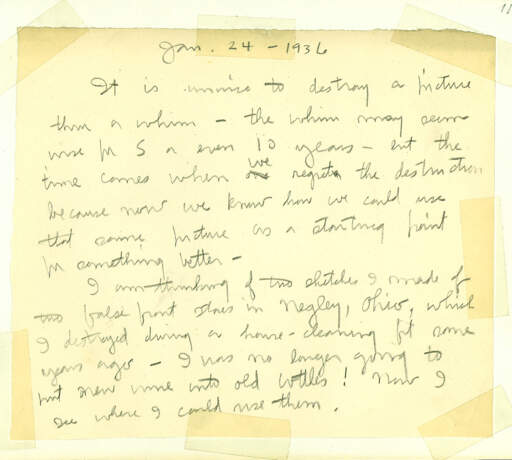 Jan. 24 - 1936
It is unwise to destroy a picture
thru a whim - the whim may seem
wise for 5 or even 10 years - but the
time comes when we regret the destruction
because now we know how we could use
that same picture as a starting point
for something better -
I am thinking of two sketches I made of
two false front stores in Negley, Ohio, which
I destroyed during a house-cleaning fit some
years ago - I was no longer going to
put new wine into old bottles! Now I
see where I could use them.